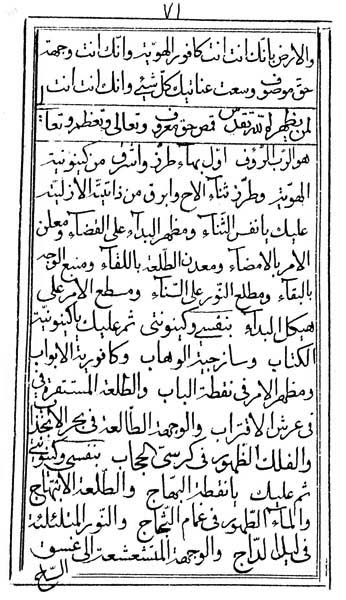 ٧١
والارض بانك انت انت كافور الهوية وانك انت وجهة
حق موصوف وسعت عنايتك كل شيئ وانك انت انت
لمن يظهره الله تقدس قمص حق معروف وتعالى وتعظم وتعا
هو الرب الرؤف اول بهاء طرز واشرق من كينونية
الهوية وطرز ثناء الاح وابرق من ذاتية الازلية
عليك يا نفس الثناء ومظهر البداء على القضاء ومعلن
الامر بالامضاء ومعدن الطلعة باللقاء ومنبع الوجه
بالبقاء ومطلع النور على السناء ومسطع الامر على
هيكل البداء بنفسي وكينونتي ثم عليك يا كينونية
الكتاب وساذجية الوهاب وكافورية الابواب
ومظهر الامر في نقطة الباب والطلعة المستقرة في
في عرش الاقتراب والوجهة الطالعة في بحر الانجذاب
والفلك الظهور في كرسي الحجاب بنفسي وكينونتي
ثم عليك يا نقطة البهاج والطلعة الابتهاج
والماء الظهور في غمام الثجاج والنور المتلئلئة
في ليل الداج والوجهة المستشعشعة الى غسق